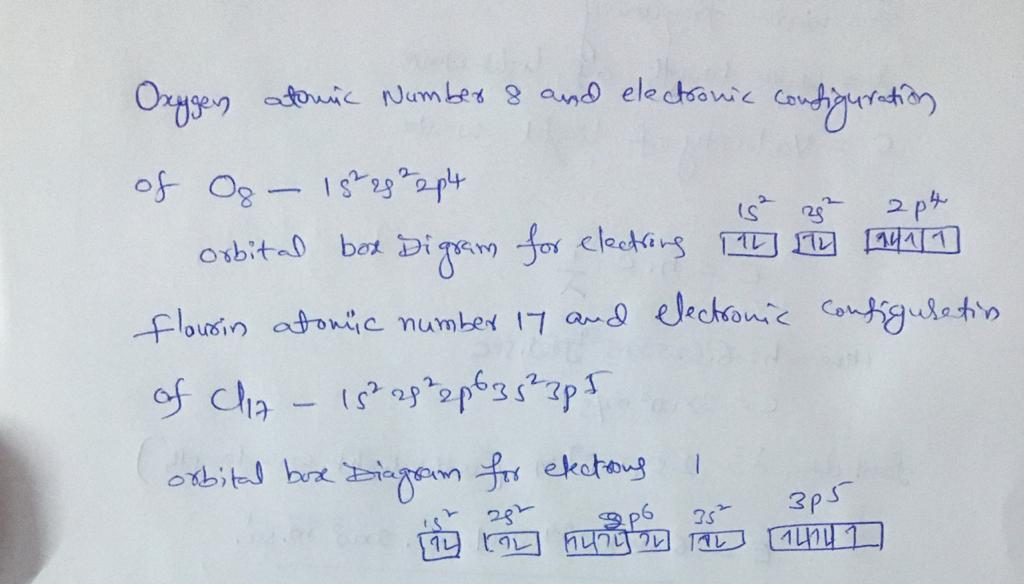 Oxygen atomic Number 8 and electronic configuration
of O8 — 1s² 2s² 2p4
1s² 2s² 2p4
orbital box Digram for electrons 1L 1L 1L 1 1
flourin atomic number 17 and electronic configuration
of Cl17 — 1s² 2s² 2p6 3s² 3p5
orbital box Diagram for electrons 1
1s² 2s² 2p6 3s² 3p5
1L 1L 1L 1L 1L 1L 1L 1L 1